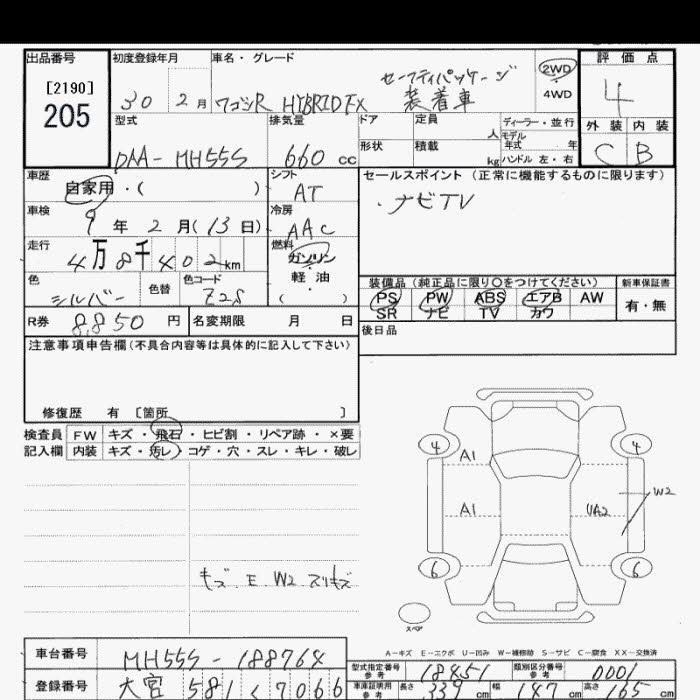 出品番号 初度登録年月 車名・グレード 評価点
[2190]
205
30 2月 ワゴンR HYBRID FX セーフティパッケージ 装着車 2WD 4WD 4
型式 排気量 ドア 定員 人 ディーラー・並行 外装 内装
DAA-MH55S 660cc 形状 積載 kg モデル年式 年 ハンドル 左・右 C B
車歴 自家用・( ) シフト AT セールスポイント(正常に機能するものに限ります)
車検 9年2月(13日) 冷房 AAC ・ナビTV
走行 4万8千402km 燃料 ガソリン・軽油・( )
色 シルバー 色替 色コード Z2S 装備品(純正品に限り○をつけてください) 新車保証書
PS PW ABS エアB AW 有・無
SR ナビ TV カワ
R券 8,850円 名変期限 月 日 後日品
注意事項申告欄(不具合内容等は具体的に記入して下さい)
修復歴 有 [箇所 ]
検査員 FW キズ・飛石・ヒビ割・リペア跡・×要
記入欄 内装 キズ・汚レ・コゲ・穴・スレ・キレ・破レ
4 4
A1
W2
A1 UA2
6 6
キズ E W2 スリキズ
スペア
A-キズ E-エクボ U-凹み W-補修跡 S-サビ C-腐食 XX-交換済
車台番号 MH55S-188764
型式指定番号 参考 18451 類別区分番号 参考 0001
登録番号 大宮 581 く 7066
車庫証明用 参考 長さ 339cm 幅 147cm 高さ 165cm